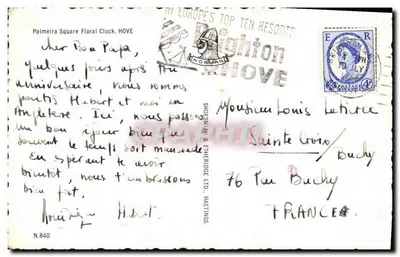 Palmeira Square Floral Clock, HOVE
Cher Bon Papa,
Quelques jours après ton
anniversaire, nous sommes
partis Hubert et moi en
Angleterre. Ici, nous passons
un bon séjour bien que
souvent le temps soit maussade
En espérant te revoir
bientôt, nous t'embrassons
bien fort.
Hubert
N.840
SHOESMITH & ETHERIDGE LTD. HASTINGS
IN EUROPE'S TOP TEN RESORTS
Brighton
HOVE
E R
Monsieur Louis
Sainte Croix
/Buchy
76 Par Buchy
FRANCE